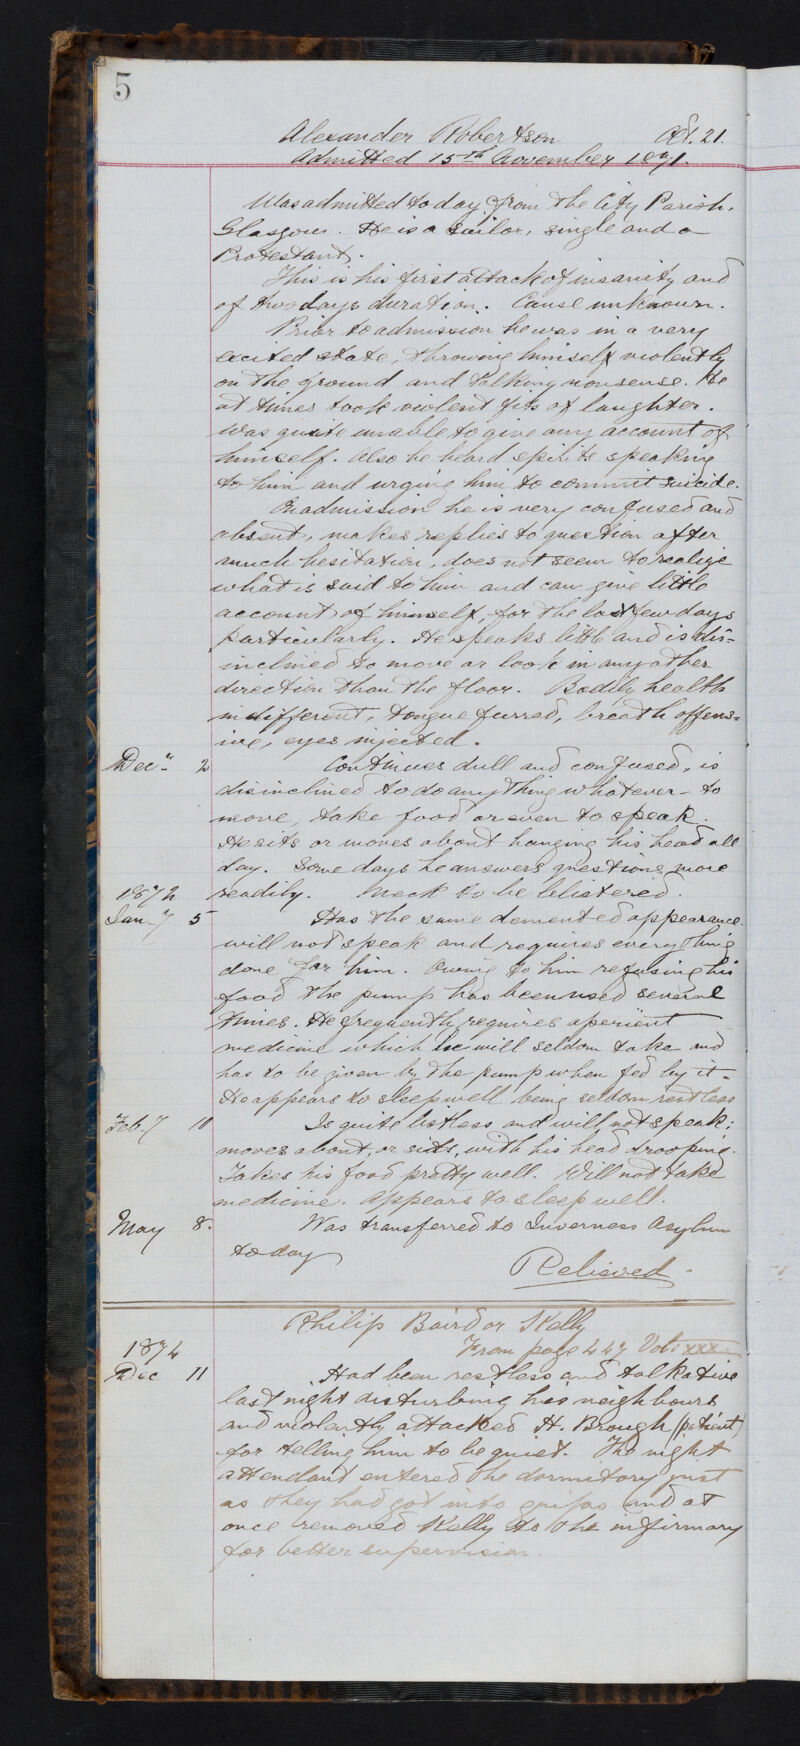 5
Alexander Robertson Aet. 21.
Admitted 15th November 1871.
Was admitted today from the City Parish,
Glasgow. He is a sailor, single and a
Protestant.
This is his first attack of insanity and
of two days duration. Cause unknown.
Prior to admission he was in a very
excited state, throwing himself violently
on the ground and talking nonsense. He
at times took violent fits of laughter.
Was quite unable to give any account of
himself. Also he heard spirits speaking
to him and urging him to commit suicide.
On admission he is very confused and
absent, makes replies to question after
much hesitation, does not seem to realize
what is said to him and can give little
account of himself, for the last few days
particularly. He speaks little and is dis=
inclined to move or look in any other
direction than the floor. Bodily health
indifferent, tongue furred, breath offens=
ive, eyes injected.
Decr 2 Continues dull and confused, is
disinclined to do anything whatever – to
move, take food or even to speak.
He sits or moves about hanging his head all
day. Some days he answers questions more
1872 readily. Neck to be blistered.
Jany 5 Has the same demented appearance.
will not speak and requires everything
done for him. Owing to him refusing his
food the pump has been used several
times. He frequently requires aperient
medicine which he will seldom take and
has to be given by the pump when fed by it –
He appears to sleep well being seldom restless
Feby 10 Is quite listless and will not speak:
moves about, or sits, with his head drooping.
Takes his food pretty well. Will not take
medicine. Appears to sleep well.
May 8. Was transferred to Inverness Asylum
today
Relieved.
Philip Baird or Kelly
1874 From page 447 Vol: xxx
Dec 11 Had been restless and talkative
last night disturbing his neighbours
and violently attacked H. Brough (patient)
for telling him to be quiet. The night
attendant entered the dormitory just
as they had got into grips and at
once removed Kelly to the infirmary
for better supervision.